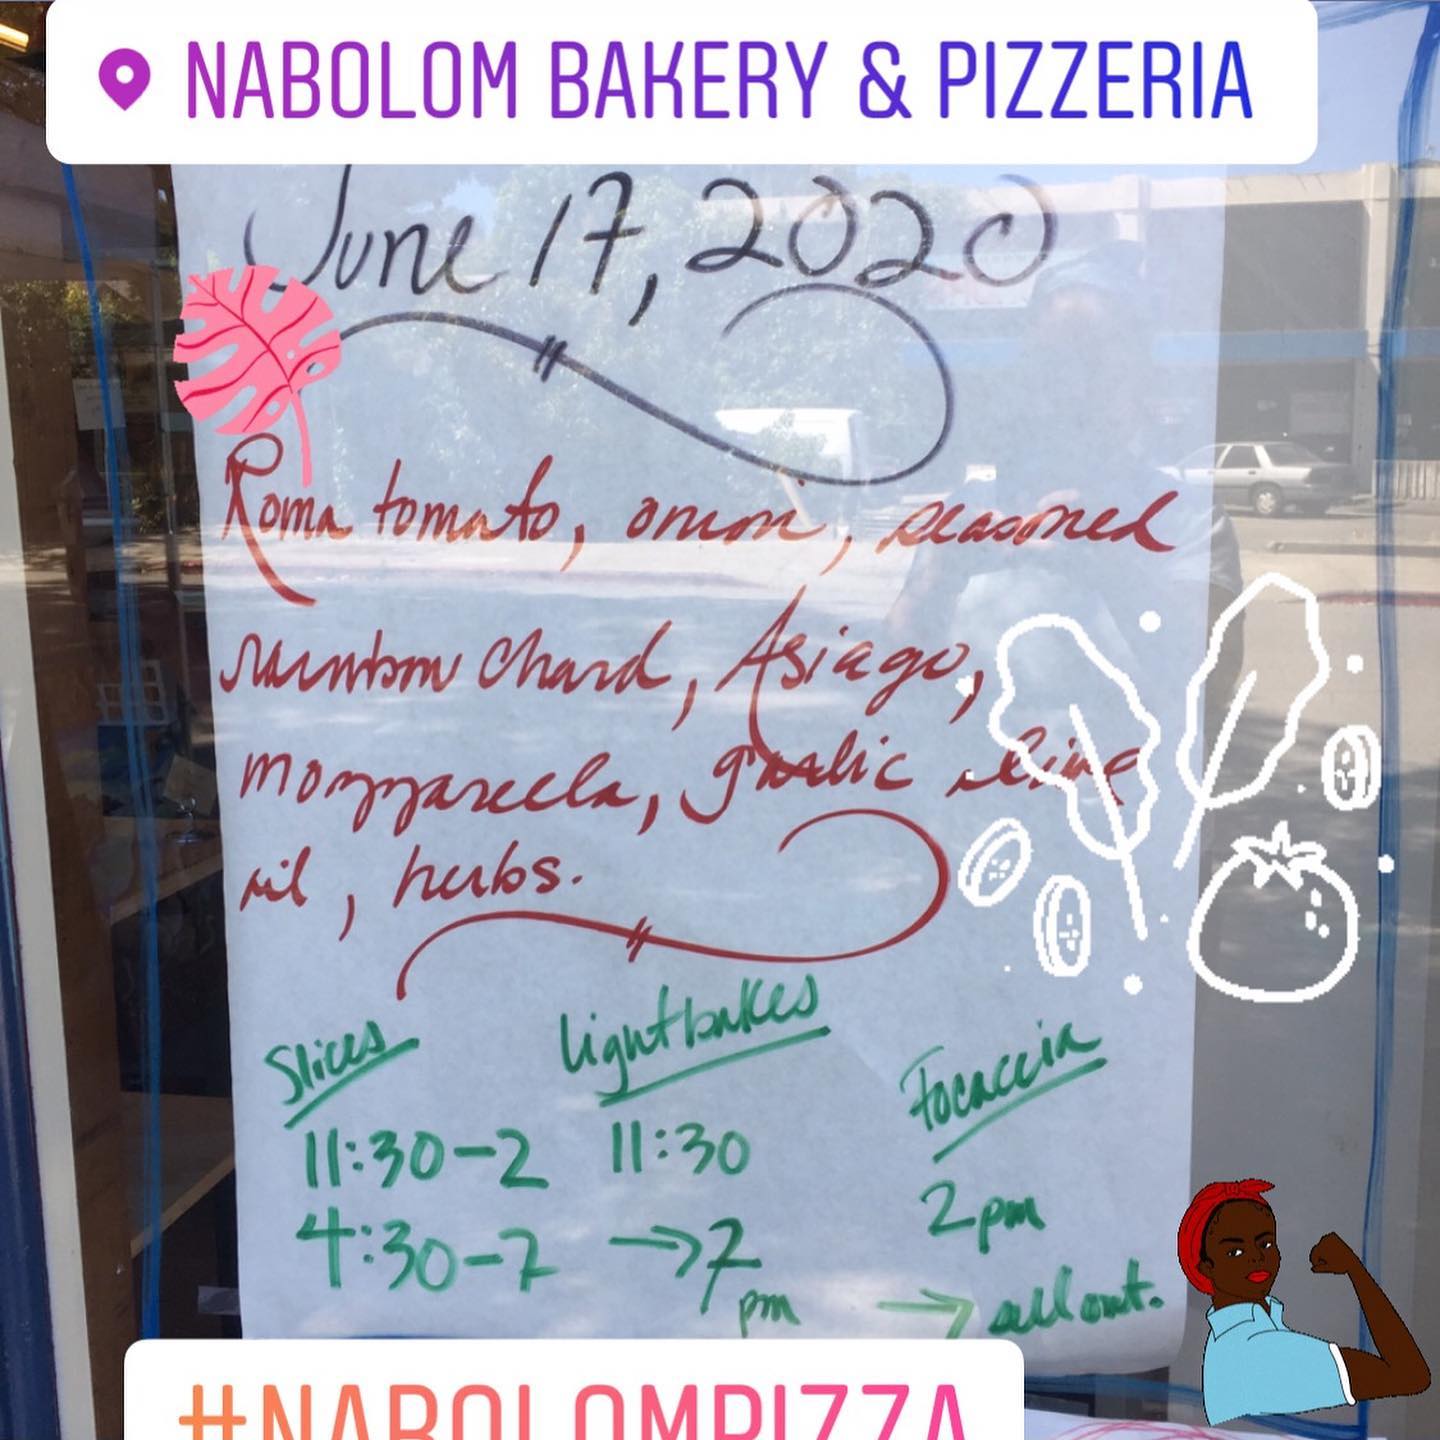 NABOLOM BAKERY & PIZZERIA
June 17, 2020
Roma tomato, onion, seasoned
rainbow chard, Asiago,
mozzarella, garlic olive
oil, herbs.
Slices Lightbakes Focaccia
11:30-2 11:30 2pm
4:30-7 →7pm → sell out.
#NABOLOMPIZZA